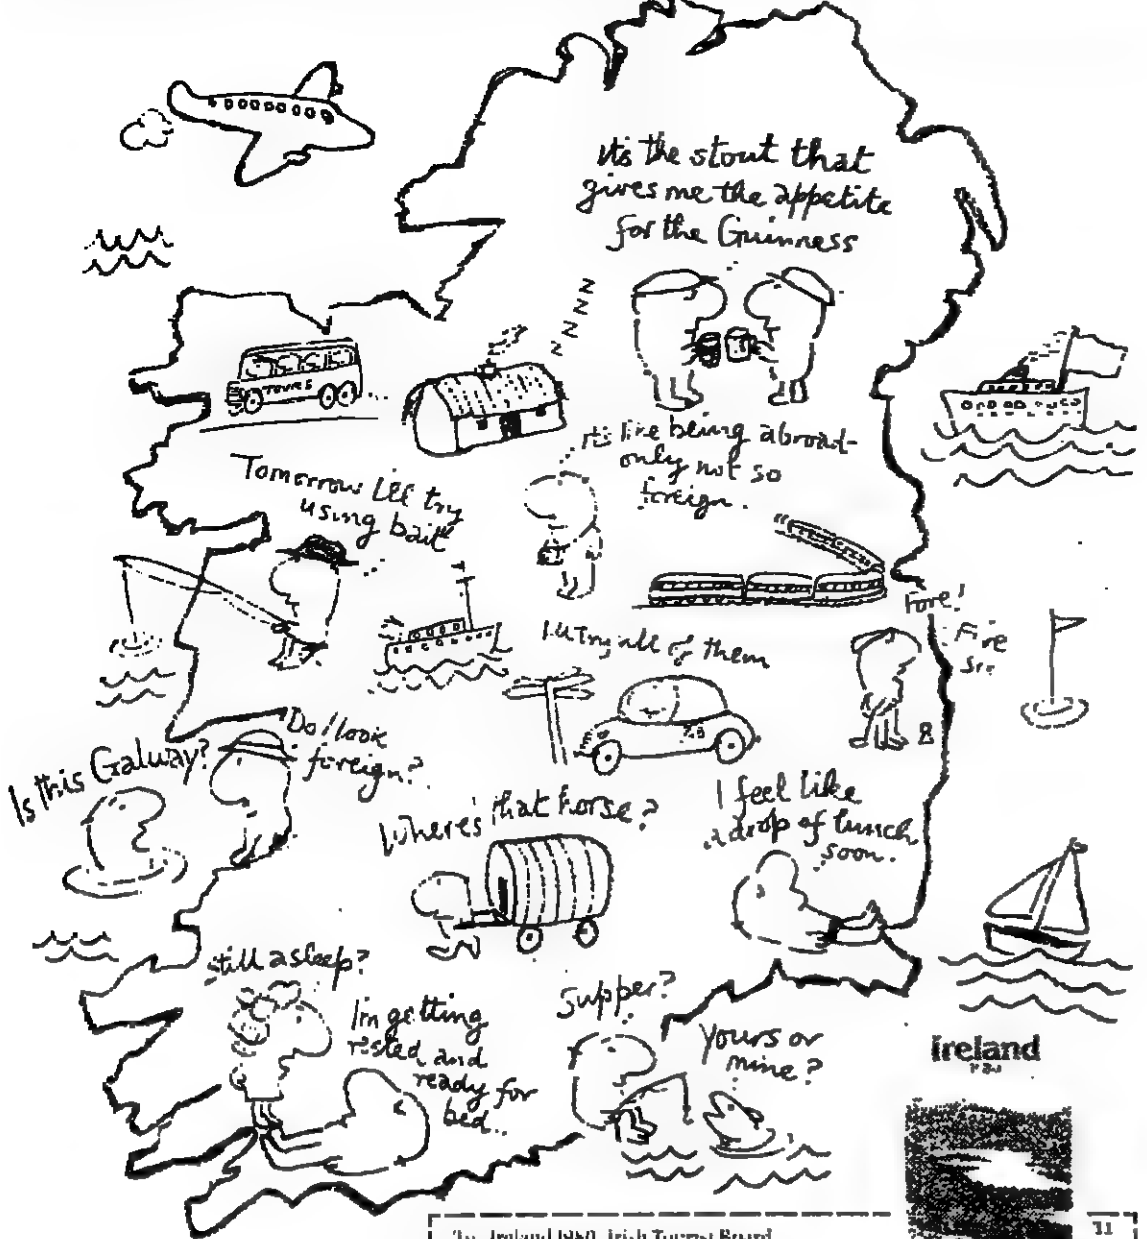 It's the stout that
gives me the appetite
for the Guinness
ZZZZZ
TOURS
It's like being abroad-
only not so
foreign.
Tomorrow I'll try
using bait
Fore!
Fire
Sir
I'll try all of them
Is this Galway?
Do I look
foreign?
Where's that horse?
I feel like
a drop of lunch
soon.
Still asleep?
I'm getting
rested and
ready for
bed...
Supper?
Yours or
mine?
ireland
To: Ireland 1980, Irish Tourist Board